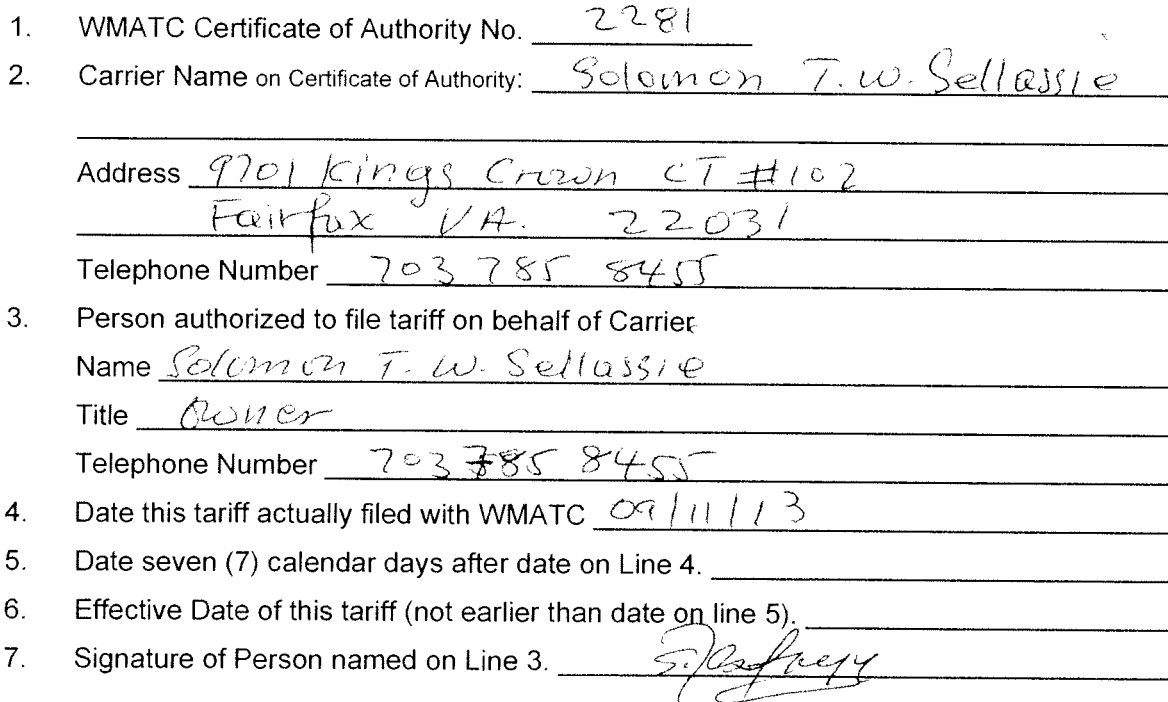 1. WMATC Certificate of Authority No. 2281
2. Carrier Name on Certificate of Authority: Solomon T.W. Sellassie
Address 9701 Kings Crown CT #102
Fairfax VA. 22031
Telephone Number 703 785 8455
3. Person authorized to file tariff on behalf of Carrier
Name Solomon T. W. Sellassie
Title Owner
Telephone Number 703 785 8455
4. Date this tariff actually filed with WMATC 09/11/13
5. Date seven (7) calendar days after date on Line 4.
6. Effective Date of this tariff (not earlier than date on line 5).
7. Signature of Person named on Line 3.